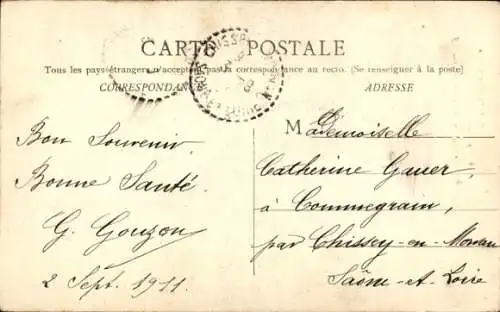 CARTE POSTALE
Tous les pays étrangers n'acceptent pas la correspondance au recto. (Se renseigner à la poste)
CORRESPONDANCE
ADRESSE
Bon Souvenir
Bonne Santé.
G. Gouzon
2 Sept. 1911.
Mademoiselle
Catherine Gauer,
à Commegrain,
par Chissey-en-Morvan
Saône-et-Loire
CHISSEY